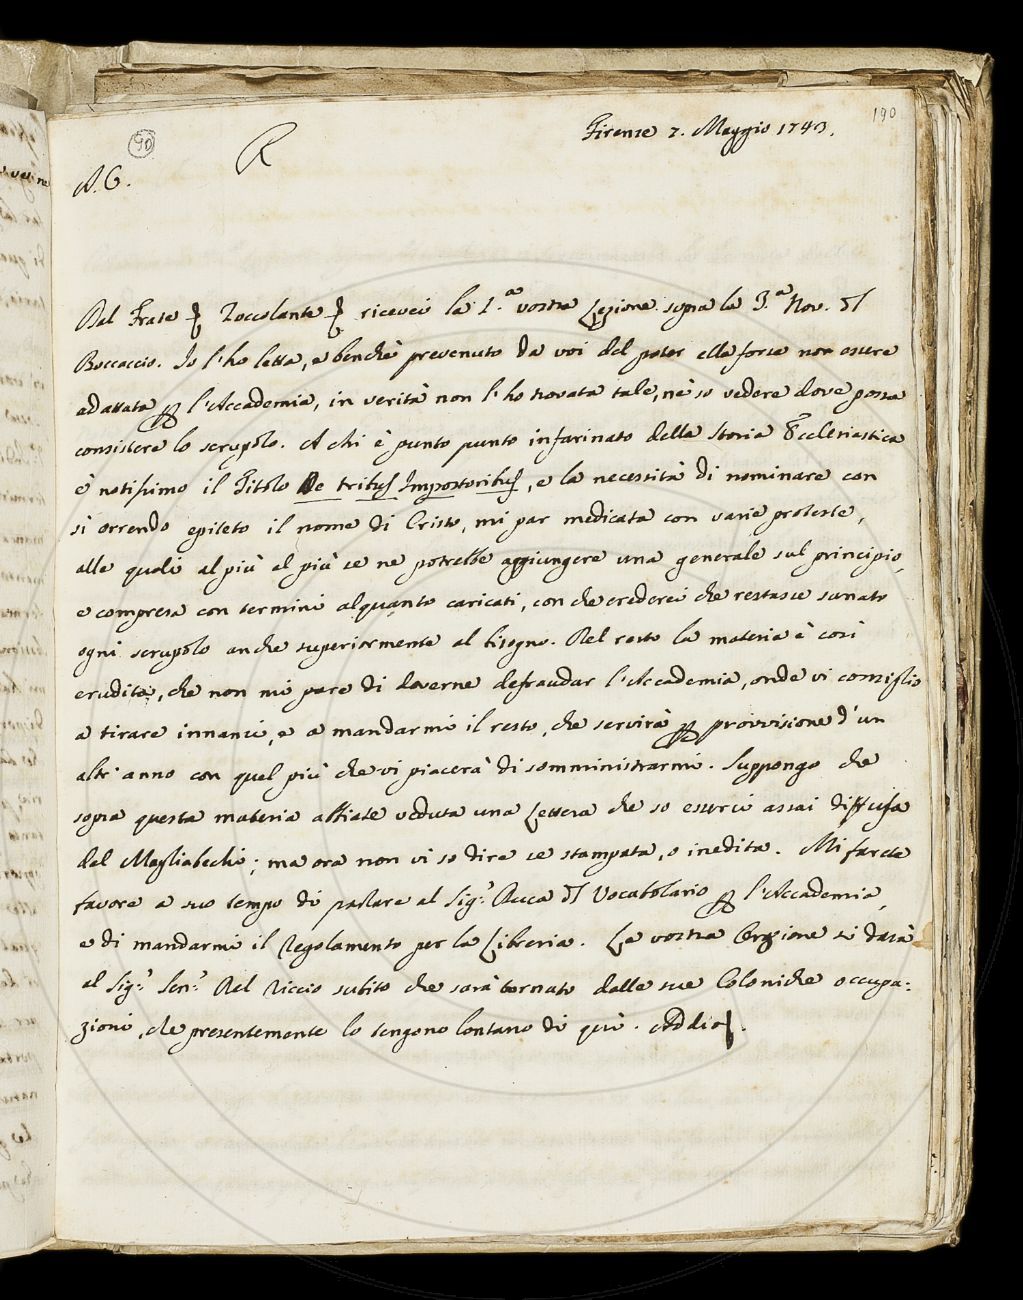 190
Firenze 7. Maggio 1743.
90 R
A. C.
Dal Frate Zoccolante ricevei la 1.ª vostra Lezione sopra la 3.ª Nov. del
Boccaccio. Io l'ho letta, e benchè prevenuto da voi del poter ella forse non essere
adattata per l'Accademia, in verità non l'ho trovata tale, nè so vedere dove possa
consistere lo scrupolo. A chi è punto punto infarinato della Storia Ecclesiastica
è notissimo il Titolo De tribus Impostoribus, e la necessità di nominare con
sì orrendo epiteto il nome di Cristo, mi par medicata con varie proteste,
alle quali al più al più se ne potrebbe aggiungere una generale sul principio,
e compresa con termini alquanto caricati, con che crederei che restasse sanato
ogni scrupolo anche superiormente al bisogno. Del resto la materia è così
erudita, che non mi pare di doverne defraudar l'Accademia, onde vi consiglio
a tirare innanzi, e a mandarmi il resto, che servirà per provvisione d'un
altr'anno con quel più che vi piacerà di somministrarmi. Suppongo che
sopra questa materia abbiate veduta una Lettera che so esservi assai diffusa
del Magliabechi; ma ora non vi so dire se stampata, o inedita. Mi farete
favore a suo tempo di parlare al Sig.r Buca del Vocabolario per l'Accademia,
e di mandarmi il Regolamento per la Libreria. La vostra Orazione si darà
al Sig.r Sen.r Del Riccio subito che sarà tornato dalle sue Coloniche occupa:
zioni, che presentemente lo tengono lontano di quì. Addio.